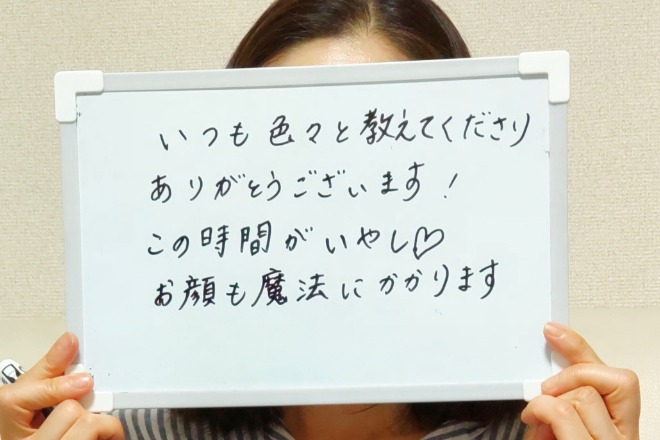 いつも色々と教えてくださり
ありがとうございます!
この時間がいやし♡
お顔も魔法にかかります